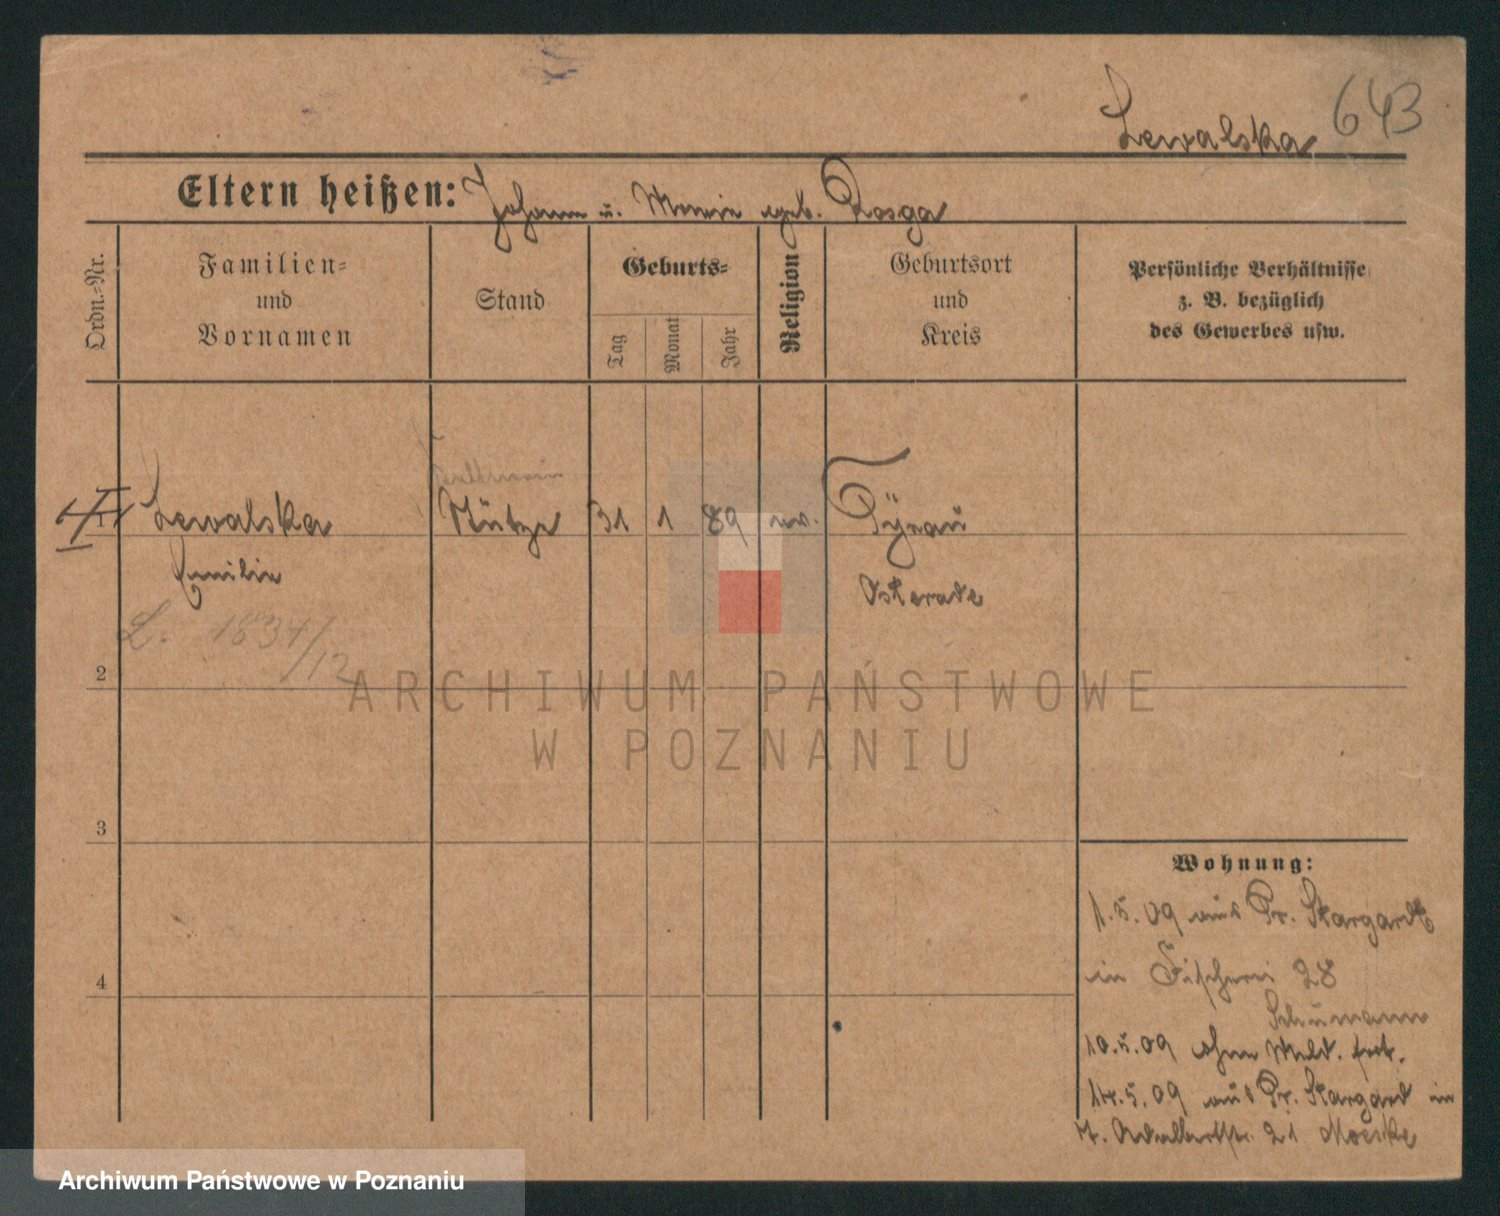 643
Lewalska
Eltern heißen: Johann u. Marie geb. Rosga
Ordn.-Nr.
Familien-
und
Vornamen
Stand
Geburts-
Tag
Monat
Jahr
Religion
Geburtsort
und
Kreis
Persönliche Verhältnisse
z. B. bezüglich
des Gewerbes usw.
Kellnerin
1 Lewalska Stütze 31 1 89 ev.
Emilie Osterode
L. 1834/12
2
ARCHIWUM PAŃSTWOWE
W POZNANIU
3
Wohnung:
1.5.09 aus Pr. Stargardt
4
in Fischerei 28
Schumann
10.5.09 ohne Meld. fort.
14.5.09 aus Pr. Stargard in
21
Archiwum Państwowe w Poznaniu